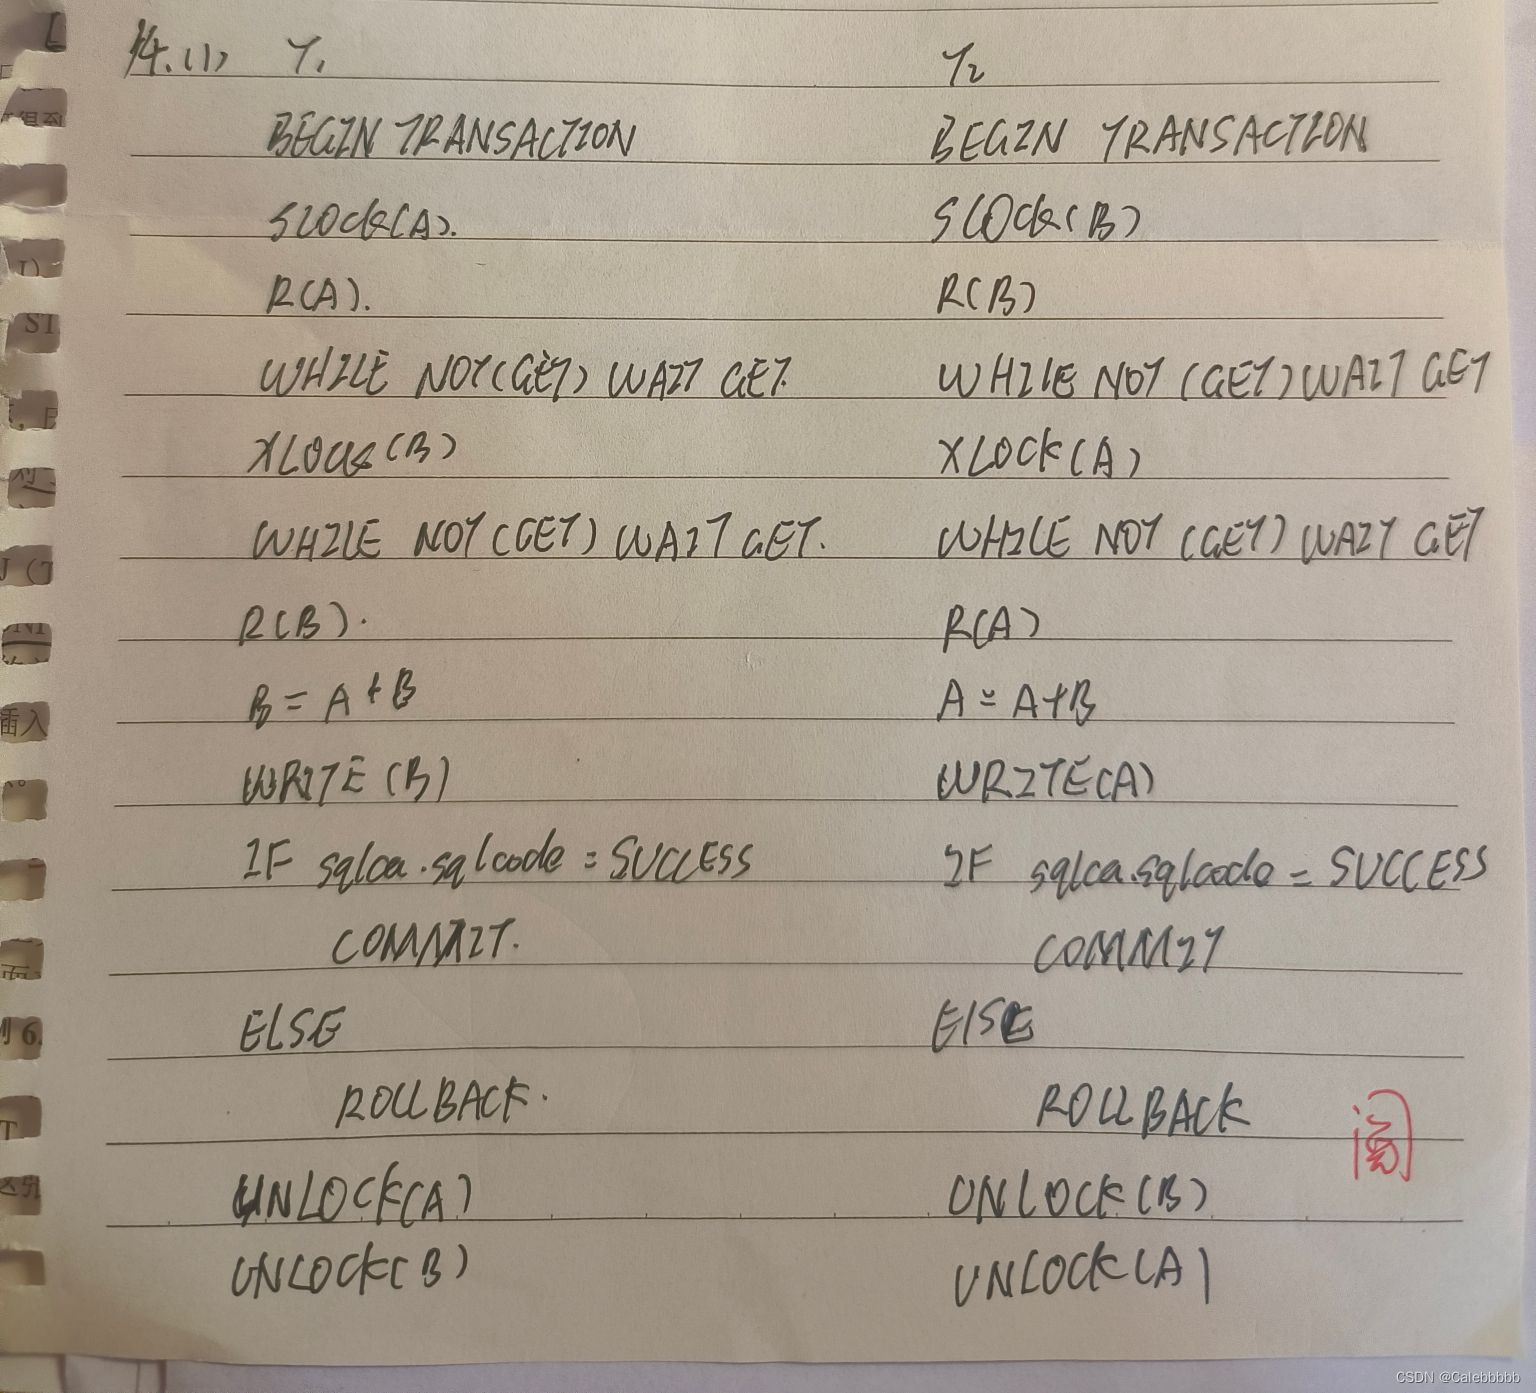 14.(1) T1 T2
BEGIN TRANSACTION BEGIN TRANSACTION
SLOCK(A). SLOCK(B)
R(A). R(B)
WHILE NOT(GET) WAIT GET. WHILE NOT (GET) WAIT GET
XLOCK(B) XLOCK(A)
WHILE NOT(GET) WAIT GET. WHILE NOT (GET) WAIT GET
R(B). R(A)
B = A+B A = A+B
WRITE(B) WRITE(A)
IF sqlca.sqlcode = SUCCESS IF sqlca.sqlcode = SUCCESS
COMMIT. COMMIT
ELSE ELSE
ROLLBACK. ROLLBACK
阅
UNLOCK(A) UNLOCK(B)
UNLOCK(B) UNLOCK(A)
CSDN @Calebbbbb